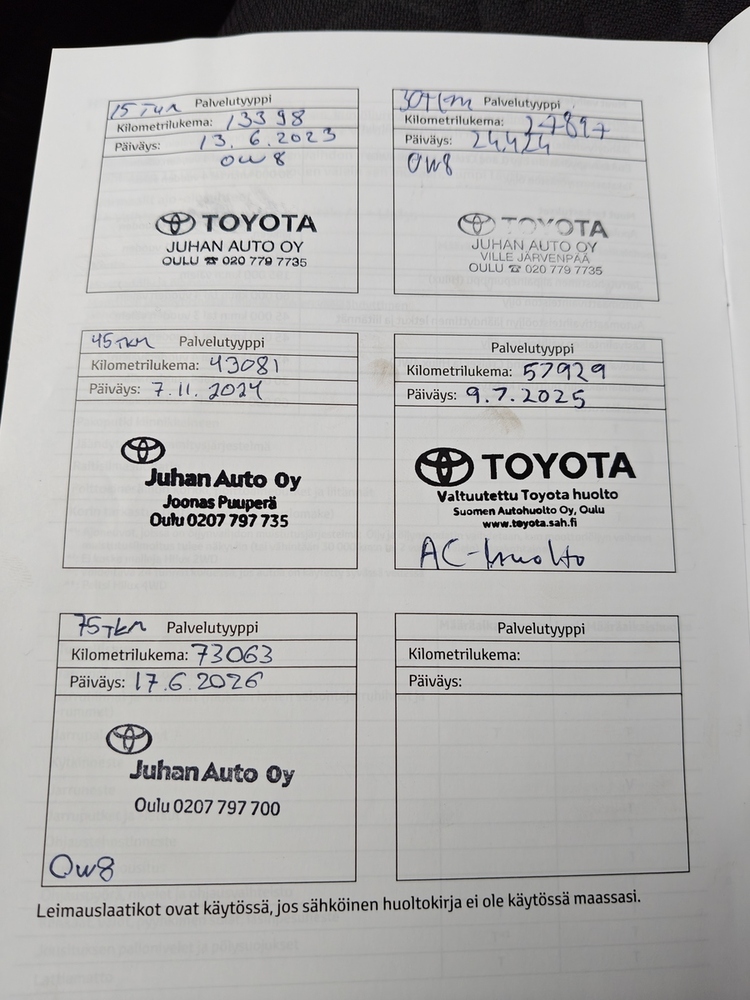 15 TKM Palvelutyyppi
Kilometrilukema: 13398
Päiväys: 13.6.2023
OW8
TOYOTA
JUHAN AUTO OY
OULU ☎ 020 779 7735
30TKM Palvelutyyppi
Kilometrilukema: 27897
Päiväys: 24.4.24
OW8
TOYOTA
JUHAN AUTO OY
VILLE JÄRVENPÄÄ
OULU ☎ 020 779 7735
45TKM Palvelutyyppi
Kilometrilukema: 43081
Päiväys: 7.11.2024
Juhan Auto Oy
Joonas Puuperä
Oulu 0207 797 735
Palvelutyyppi
Kilometrilukema: 57929
Päiväys: 9.7.2025
TOYOTA
Valtuutettu Toyota huolto
Suomen Autohuolto Oy, Oulu
www.toyota.sah.fi
AC-huolto
75TKM Palvelutyyppi
Kilometrilukema: 73063
Päiväys: 17.6.2026
Juhan Auto Oy
Oulu 0207 797 700
OW8
Palvelutyyppi
Kilometrilukema:
Päiväys:
Leimauslaatikot ovat käytössä, jos sähköinen huoltokirja ei ole käytössä maassasi.